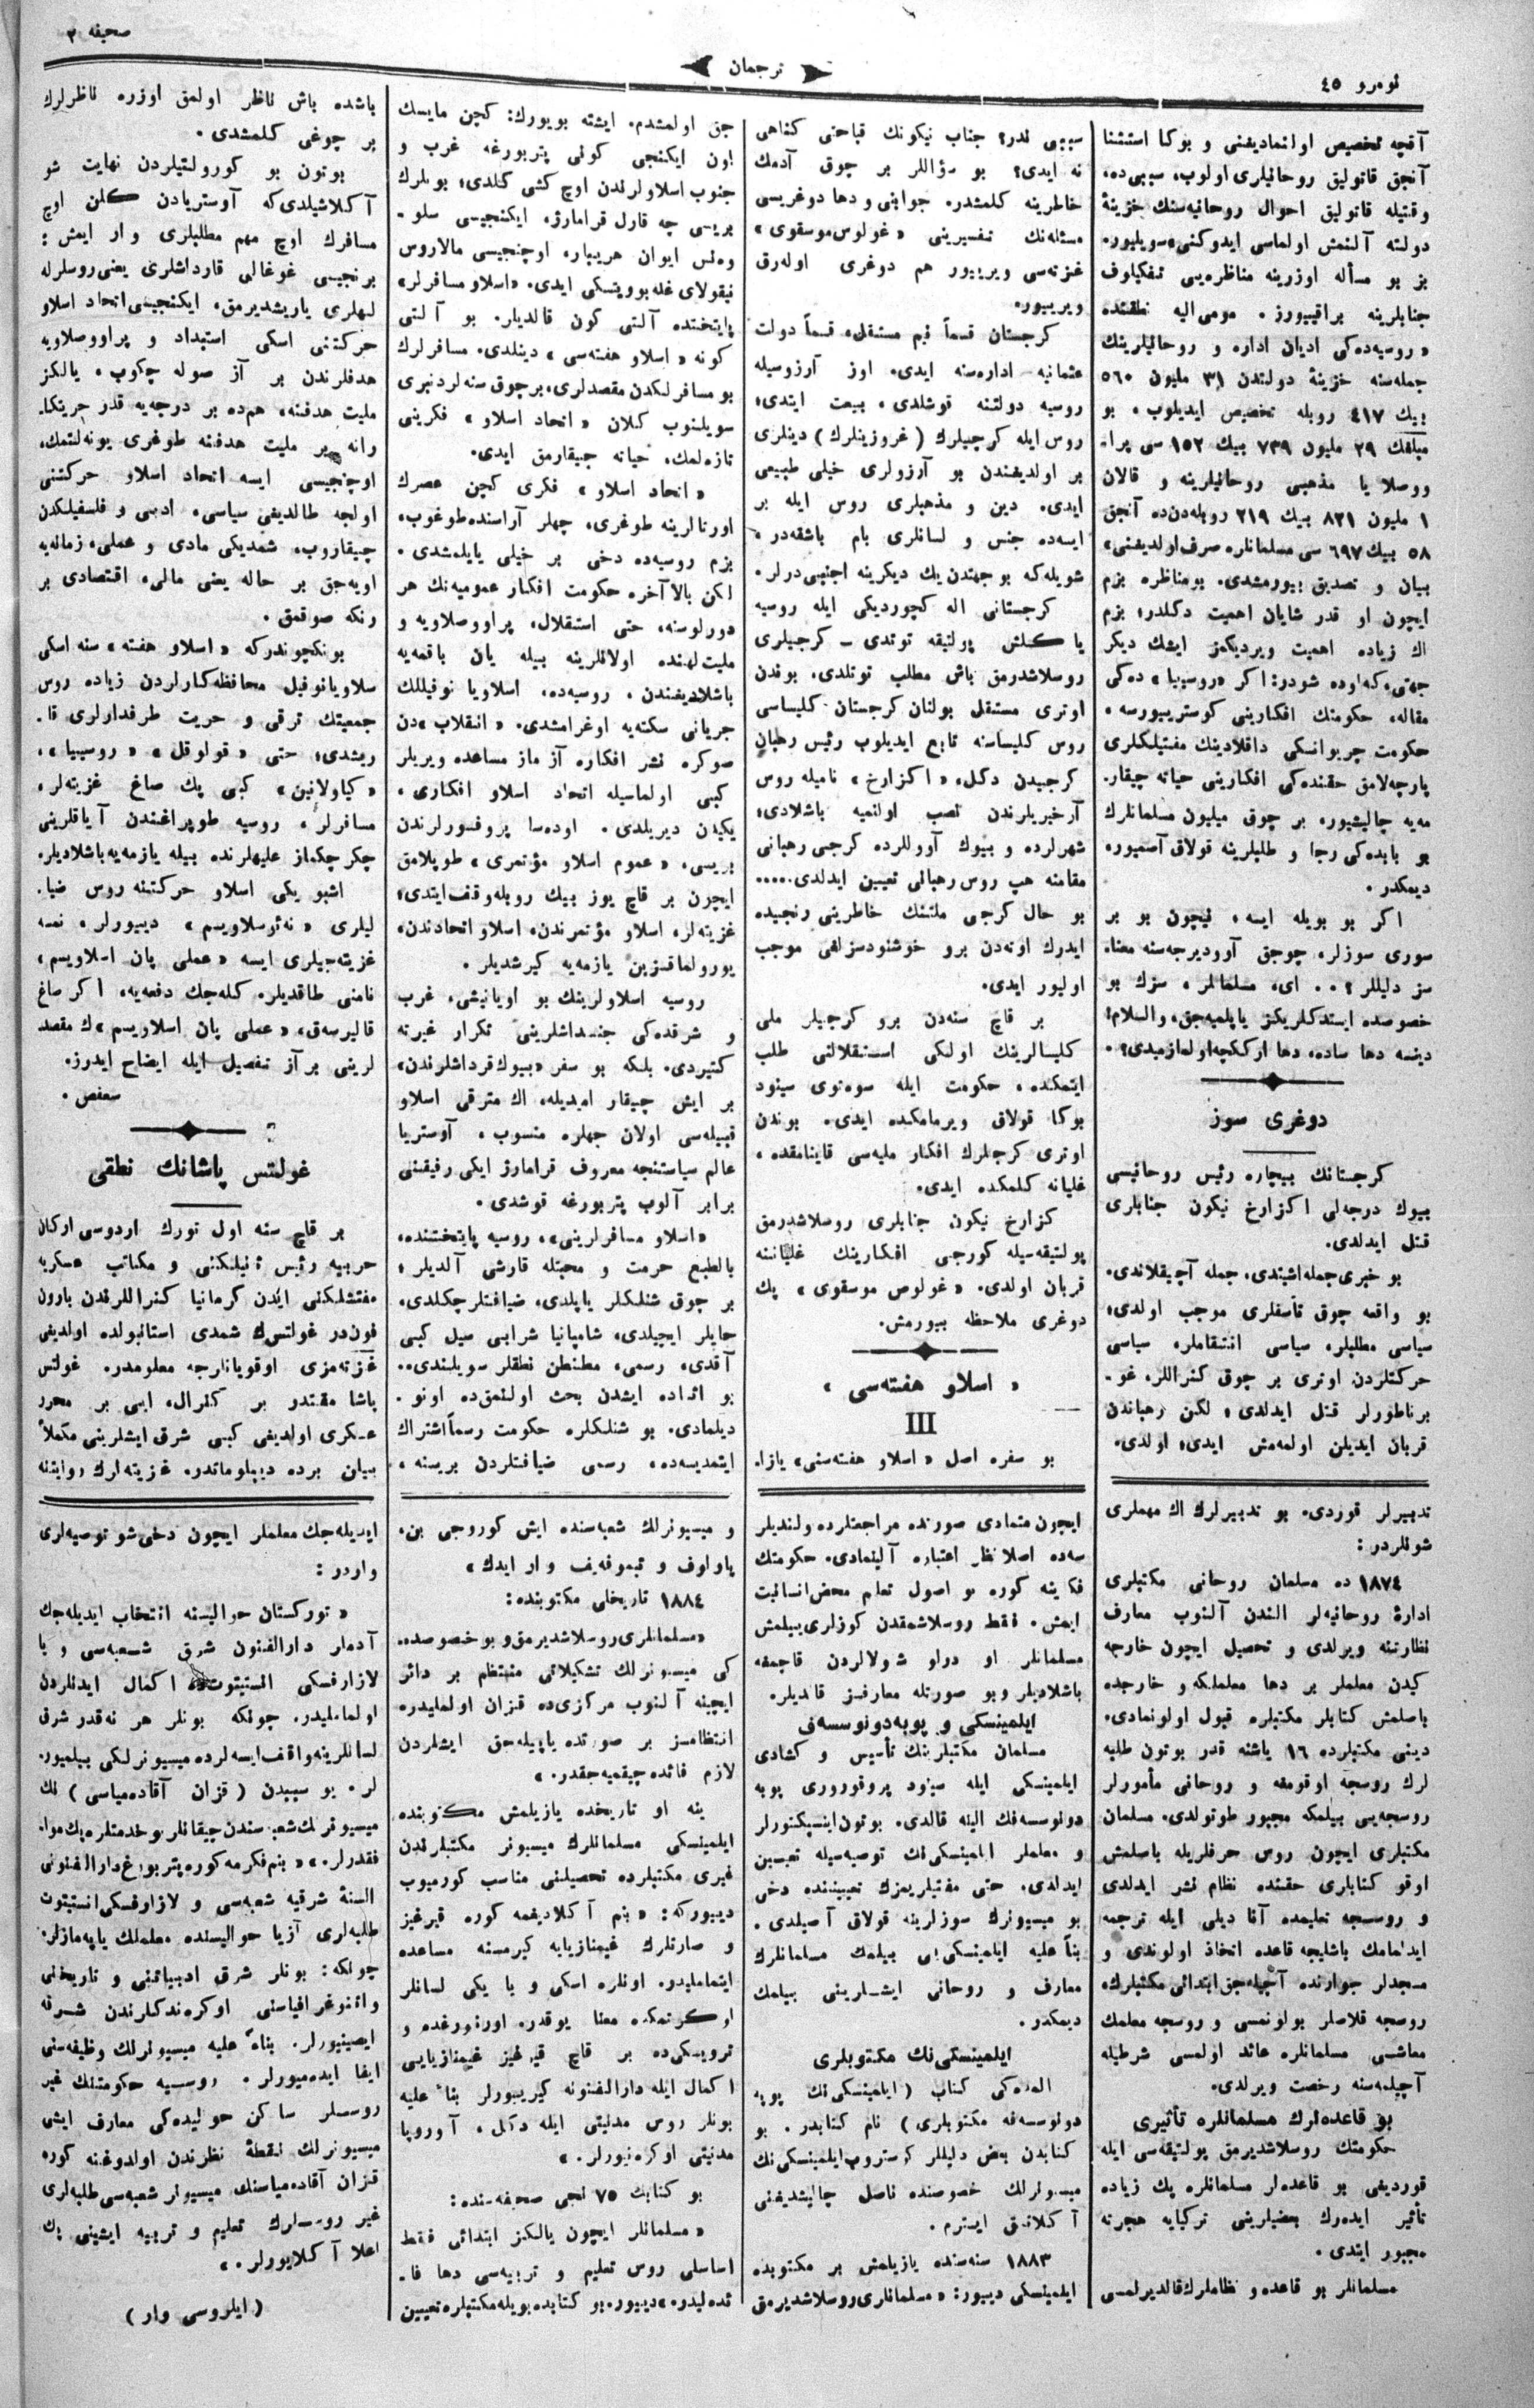 صحیفه ٢
ترجمان
نومرو ٤٥
آقچه تخصیص اولنمادیغنی و بوكا استثنا
آنجق قاتولیق روحانیلری اولوب، سببی ده،
وقتیله قاتولیق احوال روحانیه‌سنك خزینۀ
دولته آلنمش اولماسی ایدوكنی» سویلیور.
بز بو مسأله اوزرینه مناظره‌یی تفکیلوف
جنابلرینه براقییورز. مومی الیه نطقنده
«روسیه‌ده‌كی ادیان اداره و روحانیلرینك
جمله‌سنه خزینۀ دولتدن ٣١ ملیون ٥٦٠
بیك ٤١٧ روبله تخصیص ایدیلوب، بو
مبلغك ٢٩ ملیون ٧٣٩ بیك ١٥٢ سی پرا-
ووصلاویا مذهبی روحانیلرینه و قالان
١ ملیون ٨٢١ بیك ٢١٩ روبله‌دن‌ده آنجق
٥٨ بیك ٦٩٧ سی مسلمانلره صرف اولدیغنی»
بیان و تصدیق بیورمشدی. بومناظره بزم
ایچون او قدر شایان اهمیت دكلدر؛ بزم
اك زیاده اهمیت ویردیكمز ایشك دیگر
جهتی، كه اوده شودر: اكر «روسییا» ده‌كی
مقاله، حكومتك افكارینی كوستریبورسه،
حكومت چربوانسكی داقلادینك مفتیلكلری
پارچه‌لامق حقنده‌كی افكارینی حیاته چیقار-
مه‌یه چالیشیور، بر چوق میلیون مسلمانلرك
بو بابده‌كی رجا و طلبلرینه قولاق آصمیور،
دیمكدر.
اكر بو بویله ایسه، نیچون بو بر
سوری سوزلر، چوجق آوودیرجه‌سنه معنا-
سز دلیللر؟.. ای، مسلمانلر، سزك بو
خصوصده ایستدكلریكز یاپلمیه‌جق، والسلام!
دینسه دها ساده، دها ارككجه اولمازمیدی؟.
دوغری سوز
كرجستانك بیچاره رئیس روحانیسی
بیوك درجه‌لی اكزارخ نیكون جنابلری
قتل ایدلدی.
بو خبری جمله اشیتدی، جمله آچیقلاندی.
بو واقعه چوق تأسفلری موجب اولدی؛
سیاسی مطلبلر، سیاسی انتقاملر، سیاسی
حركتلردن اوتری بر چوق كنراللر، غو-
برناطورلر قتل ایدلدی؛ لكن رهباندن
قربان ایدیلن اولمه‌مش ایدی؛ اولدی.
سببی ندر؟ جناب نیكونك قباحتی كناهی
نه ایدی؟ بو سؤاللر بر چوق آدمك
خاطرینه كلمشدر. جوابنی و دها دوغریسی
مسئله‌نك تفسیرینی «غولوس موسقوی»
غزته‌سی ویریبور هم دوغری اوله‌رق
ویریبور.
كرجستان قسماً نیم مستقل، قسماً دولت
عثمانیه اداره‌سنه ایدی. اوز آرزوسیله
روسیه دولتنه قوشلدی، بیعت ایتدی؛
روس ایله كرجیلرك (غروزینلرك) دینلری
بر اولدیغندن بو آرزولری خیلی طبیعی
ایدی. دین و مذهبلری روس ایله بر
ایسه‌ده جنس و لسانلری بام باشقه‌در،
شویله‌كه بو جهتدن یك دیكرینه اجنبی درلر.
كرجستانی اله كچوردیكی ایله روسیه
یاكلش پولیتیقه توتدی – كرجیلری
روسلاشدرمق باش مطلب توتلدی. بوندن
اوتری مستقل بولنان كرجستان كلیساسی
روس كلیساسنه تابع ایدیلوب رئیس رهبان
كرجیدن دكل، «اكزارخ» نامیله روس
آرخیریلرندن نصب اولنمیه باشلادی؛
شهرلرده و بیوك آووللرده كرجی رهبانی
مقامنه هپ روس رهبانی تعیین ایدلدی.....
بو حال كرجی ملتنك خاطرینی رنجیده
ایدرك اوته‌دن برو خوشنودسزلغی موجب
اولیور ایدی.
بر قاچ سنه‌دن برو كرجیلر ملی
كلیسالرینك اولكی استقلالنی طلب
ایتمكده، حكومت ایله سوه‌توی سینود
بوكا قولاق ویرمامكده ایدی. بوندن
اوتری كرجلرك افكار ملیه‌سی قاینامقده،
غلیانه كلمكده ایدی.
كزارخ نیكون جنابلری روسلاشدرمق
پولتیقه‌سیله كورجی افكارینك غلیاننه
قربان اولدی. «غولوس موسقوی» پك
دوغری ملاحظه بیورمش.
«اسلاو هفته‌سی»
III
بو سفره اصل «اسلاو هفته‌سنی» یازا-
جق اولمشدم. ایشته بویورك: كچن مایسك
اون ایكنجی كونی پتربورغه غرب و
جنوب اسلاولرندن اوچ كشی كلدی؛ بونلرك
بریسی چه قارل قرامارژ، ایكنجیسی سلو-
وه‌نس ایوان هریبار، اوچنجیسی مالاروس
نیقولای غله‌بوویتسكی ایدی. «اسلاو مسافرلر»
پایتختده آلتی كون قالدیلر. بو آلتی
كونه «اسلاو هفته‌سی» دینلدی. مسافرلرك
بو مسافرلكدن مقصدلری، بر چوق سنه‌لردنبری
سویلنوب كلان «اتحاد اسلاو» فكرینی
تازه‌لمك، حیاته چیقارمق ایدی.
«اتحاد اسلاو» فكری كچن عصرك
اورتالرینه طوغری، چهلر آراسنده طوغوب،
بزم روسیه‌ده دخی بر خیلی یایلمشدی.
لكن بالآخره حكومت افكار عمومیه‌نك هر
دورلوسنه، حتی استقلال، پراووصلاویه و
ملیت لهنده اولانلرینه بیله یان باقمه‌یه
باشلادیغندن، روسیه‌ده، اسلاویا نوفیللك
جریانی سكته‌یه اوغرامشدی. «انقلاب» دن
صوكره نشر افكاره آز ماز مساعده ویریلر
كبی اولماسیله اتحاد اسلاو افكاری،
یكیدن دیریلدی. اوده‌سا پروفسورلرندن
بریسی، «عموم اسلاو مؤتمری» طوپلامق
ایچون بر قاچ یوز بیك روبله وقف ایتدی؛
غزیته‌لر، اسلاو مؤتمرندن، اسلاو اتحادندن،
یورولماقسزین یازمه‌یه كیرشدیلر.
روسیه اسلاولرینك بو اویانیشی، غرب
و شرقده‌كی جنسداشلرینی تكرار غیرته
كتیردی. بلكه بو سفر «بیوك قرداشلرندن»
بر ایش چیقار امیدیله، اك مترقی اسلاو
قبیله‌سی اولان چهلره منسوب، آوستریا
عالم سیاستنجه معروف قرامارژ ایكی رفیقنی
برابر آلوب پتربورغه قوشدی.
«اسلاو مسافرلرینی»، روسیه پایتختنده،
بالطبع حرمت و محبتله قارشی آلدیلر؛
بر چوق شنلكلر یاپلدی، ضیافتلر چكلدی،
چایلر ایچیلدی، شامپانیا شرابی سیل كبی
آقدی، رسمی، مطنطن نطقلر سویلندی..
بو اثناده ایشدن بحث اولنمق‌ده اونو-
دیلمادی. بو شنلكلره حكومت رسماً اشتراك
ایتمدیسه‌ده، رسمی ضیافتلردن بریسنه،
باشده باش ناظر اولمق اوزره ناظرلرك
بر چوغی كلمشدی.
بوتون بو كورولتیلردن نهایت شو
آكلاشیلدی‌كه آوستریادن كلن اوچ
مسافرك اوچ مهم مطلبلری وار ایمش:
برنجیسی غوغالی قارداشلری یعنی روسلرله
لهلری یاریشدیرمق، ایكنجیسی اتحاد اسلاو
حركتنی اسكی استبداد و پراووصلاویه
هدفلرندن بر آز صوله چكوب، یالكز
ملیت هدفنه، هم‌ده بر درجه‌یه قدر حریتكا-
رانه بر ملیت هدفنه طوغری یونه‌لتمك،
اوچنجیسی ایسه اتحاد اسلاو حركتنی
اولجه طالدیغی سیاسی، ادبی و فلسفیلكدن
چیقاروب، شمدیكی مادی و عملی، زمانه‌یه
اویه‌جق بر حاله یعنی مالی، اقتصادی بر
رنكه صوقمق.
بونكچوندركه «اسلاو هفته» سنه اسكی
سلاویانوفیل محافظه‌كارلردن زیاده روس
جمعیتك ترقی و حریت طرفدارلری قا-
ریشدی؛ حتی «قولوقل» «روسییا»،
«كیاولانین» كبی پك صاغ غزیته‌لر،
مسافرلر، روسیه طوپراغندن آیاقلرینی
چكر چكماز علیهلرنده بیله یازمه‌یه باشلادیلر.
اشبو یكی اسلاو حركتنه روس ضیا-
لیلری «نه‌ئوسلاویسم» دییورلر، نمسه
غزیته‌جیلری ایسه «عملی پان اسلاویسم»
نامنی طاقدیلر. كله‌جك دفعه‌یه، اكر صاغ
قالیرسه‌ق، «عملی پان اسلاویسم» ك مقصد
لرینی بر آز تفصیل ایله ایضاح ایدرز.
سعفص.
غولتس پاشانك نطقی
بر قاچ سنه اول تورك اردوسی اركان
حربیه رئیس ثانیلكنی و مكاتب عسكریه
مفتشلكنی ایدن كرمانیا كنراللرندن بارون
فون‌در غولتس‌ك شمدی استانبولده اولدیغی
غزته‌مزی اوقویانلرجه معلومدر. غولتس
پاشا مقتدر بر كنرال، ایی بر محرر
عسكری اولدیغی كبی شرق ایشلرینی مكملاً
بیلن برده دیپلوماتدر. غزیته‌لرك روایتنه
تدبیرلر قوردی. بو تدبیرلرك اك مهملری
شونلردر:
١٨٧٤ ده مسلمان روحانی مكتبلری
ادارۀ روحانیه‌لر الندن آلنوب معارف
نظارتنه ویرلدی و تحصیل ایچون خارجه
كیدن معلملر بر دها معلملكه و خارجده
باصلمش كتابلر مكتبلره قبول اولونمادی.
دینی مكتبلرده ١٦ یاشنه قدر بوتون طلبه
لرك روسجه اوقومغه و روحانی مأمورلر
روسجه‌یی بیلمكه مجبور طوتولدی. مسلمان
مكتبلری ایچون روس حرفلریله باصلمش
اوقو كتابلری حقنده نظام نشر ایدلدی
و روسجه تعلیمده آنا دیلی ایله ترجمه
ایدلمامك باشلیجه قاعده اتخاذ اولوندی و
مسجدلر جوارنده آچیله‌جق ابتدائی مكتبلرك،
روسجه قلاصلر بولونمسی و روسجه معلمك
معاشی مسلمانلره عائد اولمسی شرطیله
آچیلمه‌سنه رخصت ویرلدی.
بو قاعده‌لرك مسلمانلره تأثیری
حكومتك روسلاشدیرمق پولتیقه‌سی ایله
قوردیغی بو قاعده‌لر مسلمانلره پك زیاده
تأثیر ایده‌رك بعضیلرینی تركیایه هجرته
مجبور ایتدی.
مسلمانلر بو قاعده و نظاملرك قالدیرلمسی
ایچون متمادی صورتده مراجعتلرده ولندیلر
سه‌ده اصلا نظر اعتباره آلینمادی. حكومتك
فكرینه كوره بو اصول تعلیم محض انسانیت
ایمش. فقط روسلاشمقدن كوزلری ییلمش
مسلمانلر او درلو شولالردن قاچمغه
باشلادیلر و بو صورتله معارفسز قالدیلر.
ایلمینسكی و پوبه‌دونوسسه‌ف
مسلمان مكتبلرینك تأسیس و كشادی
ایلمینسكی ایله سینود پروقوروری پوبه
دونوسسه‌فك الینه قالدی. بوتون اینسپكتورلر
و معلملر ایلمینسكی‌نك توصیه‌سیله تعیین
ایدلدی. حتی مفتیلریمزك تعییننده دخی
بو میسیونرك سوزلرینه قولاق آصیلدی.
بناً علیه ایلمینسكی‌یی بیلمك مسلمانلرك
معارف و روحانی ایشلرینی بیلمك
دیمكدر.
ایلمینسكی‌نك مكتوبلری
المده‌كی كتاب (ایلمینسكی‌نك پوبه
دونوسسه‌فه مكتوبلری) نام كتابدر. بو
كتابدن بعض دلیللر كوستروب ایلمینسكی‌نك
میسیونرلك خصوصنده ناصل چالیشدیغنی
آكلاتمق ایسترم.
١٨٨٣ سنه‌سنده یازیلمش بر مكتوبده
ایلمینسكی دییور: «مسلمانلری روسلاشدیرمق
و میسیونرلك شعبه‌سنده ایش كوروجی بن،
پاولوف و تیموفه‌یف وار ایدك»
١٨٨٤ تاریخلی مكتوبنده:
«مسلمانلری روسلاشدیرمق و بو خصوصده-
كی میسیونرلك تشكیلاتی منتظم بر دائره
ایچینه آلنوب مركزی‌ده قزان اولملیدر،
انتظامسز بر صورتده یاپیله‌جق ایشلردن
لازم فائده چیقمیه‌جقدر.»
ینه او تاریخده یازیلمش مكتوبنده
ایلمینسكی مسلمانلرك میسیونر مكتبلرندن
غیری مكتبلرده تحصیلنی مناسب كورمیوب
دییوركه: «بنم آكلادیغمه كوره قیرغیز
و صارتلرك غیمنازیایه كیرمسنه مساعده
ایتمامه‌لیدر. اونلره اسكی و یا یكی لسانلر
اوكرتمكده معنا یوقدر. اورنبورغده و
ترویسكی‌ده بر قاچ قیرغیز غیمنازیایی
اكمال ایله دارالفنونه كیریبورلر بناً علیه
بونلر روس مدنیتی ایله دكل، آوروپا
مدنیتی اوكره‌نیورلر.»
بو كتابك ٧٥ نجی صحیفه‌سنده:
«مسلمانلر ایچون یالكز ابتدائی فقط
اساسلی روس تعلیم و تربیه‌سی دها فا-
ئده‌لیدر.» دییور. بو كتابده بویله مكتبلره تعیین
ایدیله‌جك معلملر ایچون دخی شو توصیه‌لری
واردر:
«توركستان حوالیسنه انتخاب ایدیله‌جك
آدملر دارالفنون شرق شعبه‌سی و یا
لازارفسكی انستیتوت‌ده اكمال ایدنلردن
اولماملیدر. چونكه بونلر هر نه‌قدر شرق
لسانلرینه واقف ایسه‌لرده میسیونرلكی بیلمیور-
لر. بو سببدن (قزان آقاده‌میاسی) نك
میسیونرلك شعبه‌سندن چیقانلر بو خدمتلره پك موا-
فقدرلر.» «بنم فكرمه كوره پتربورغ دارالفنونی
السنۀ شرقیه شعبه‌سی و لازارفسكی انستیتوت
طلبه‌لری آزیا حوالیسنده معلملك یاپه‌مازلر.
چونكه: بونلر شرق ادبیاتنی و تاریخنی
واتنوغرافیاسنی اوكره‌ندكلرندن شرقه
ایصینیورلر. بناً علیه میسیونرلك وظیفه‌سنی
ایفا ایده‌میورلر. روسیه حكومتنك غیر
روسلر ساكن حوالیده‌كی معارف ایشی
میسیونرلك نقطۀ نظرندن اولدوغنه كوره
قزان آقاده‌میاسنك میسیونر شعبه‌سی طلبه‌لری
غیر روسلرك تعلیم و تربیه ایشینی پك
اعلا آكلایورلر.»
(ایلروسی وار)